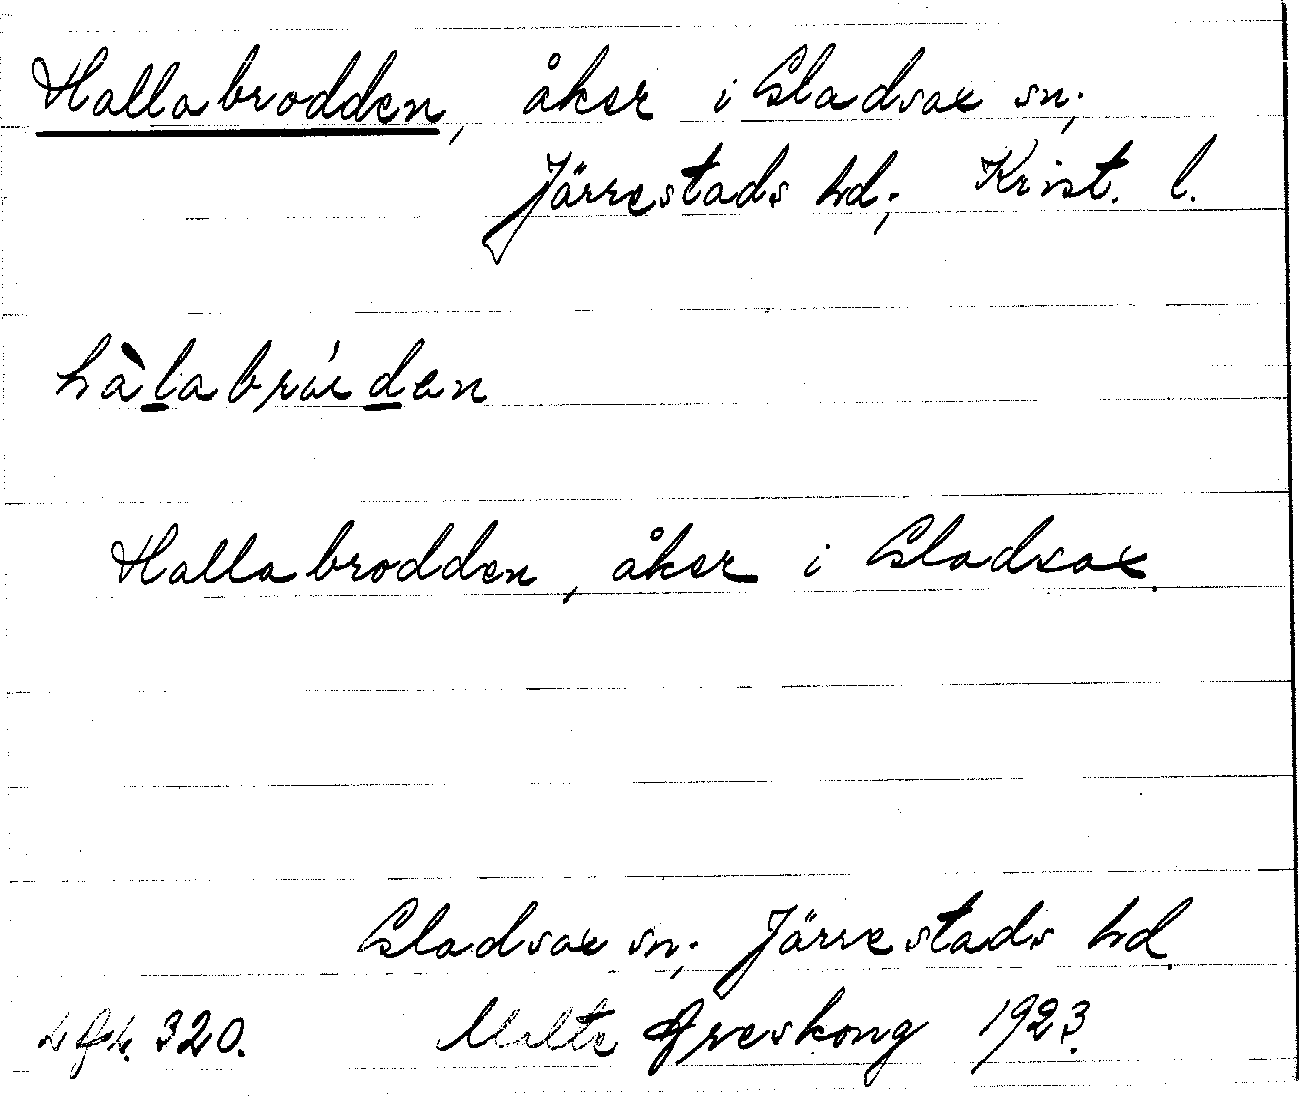 Hallabrodden, åker i Gladsax sn;
Järrestads hd; Krist. l.
hàlabråden
Hallabrodden, åker i Gladsax.
Gladsax sn; Järrestads hd.
320. Malte Areskoug 1923.